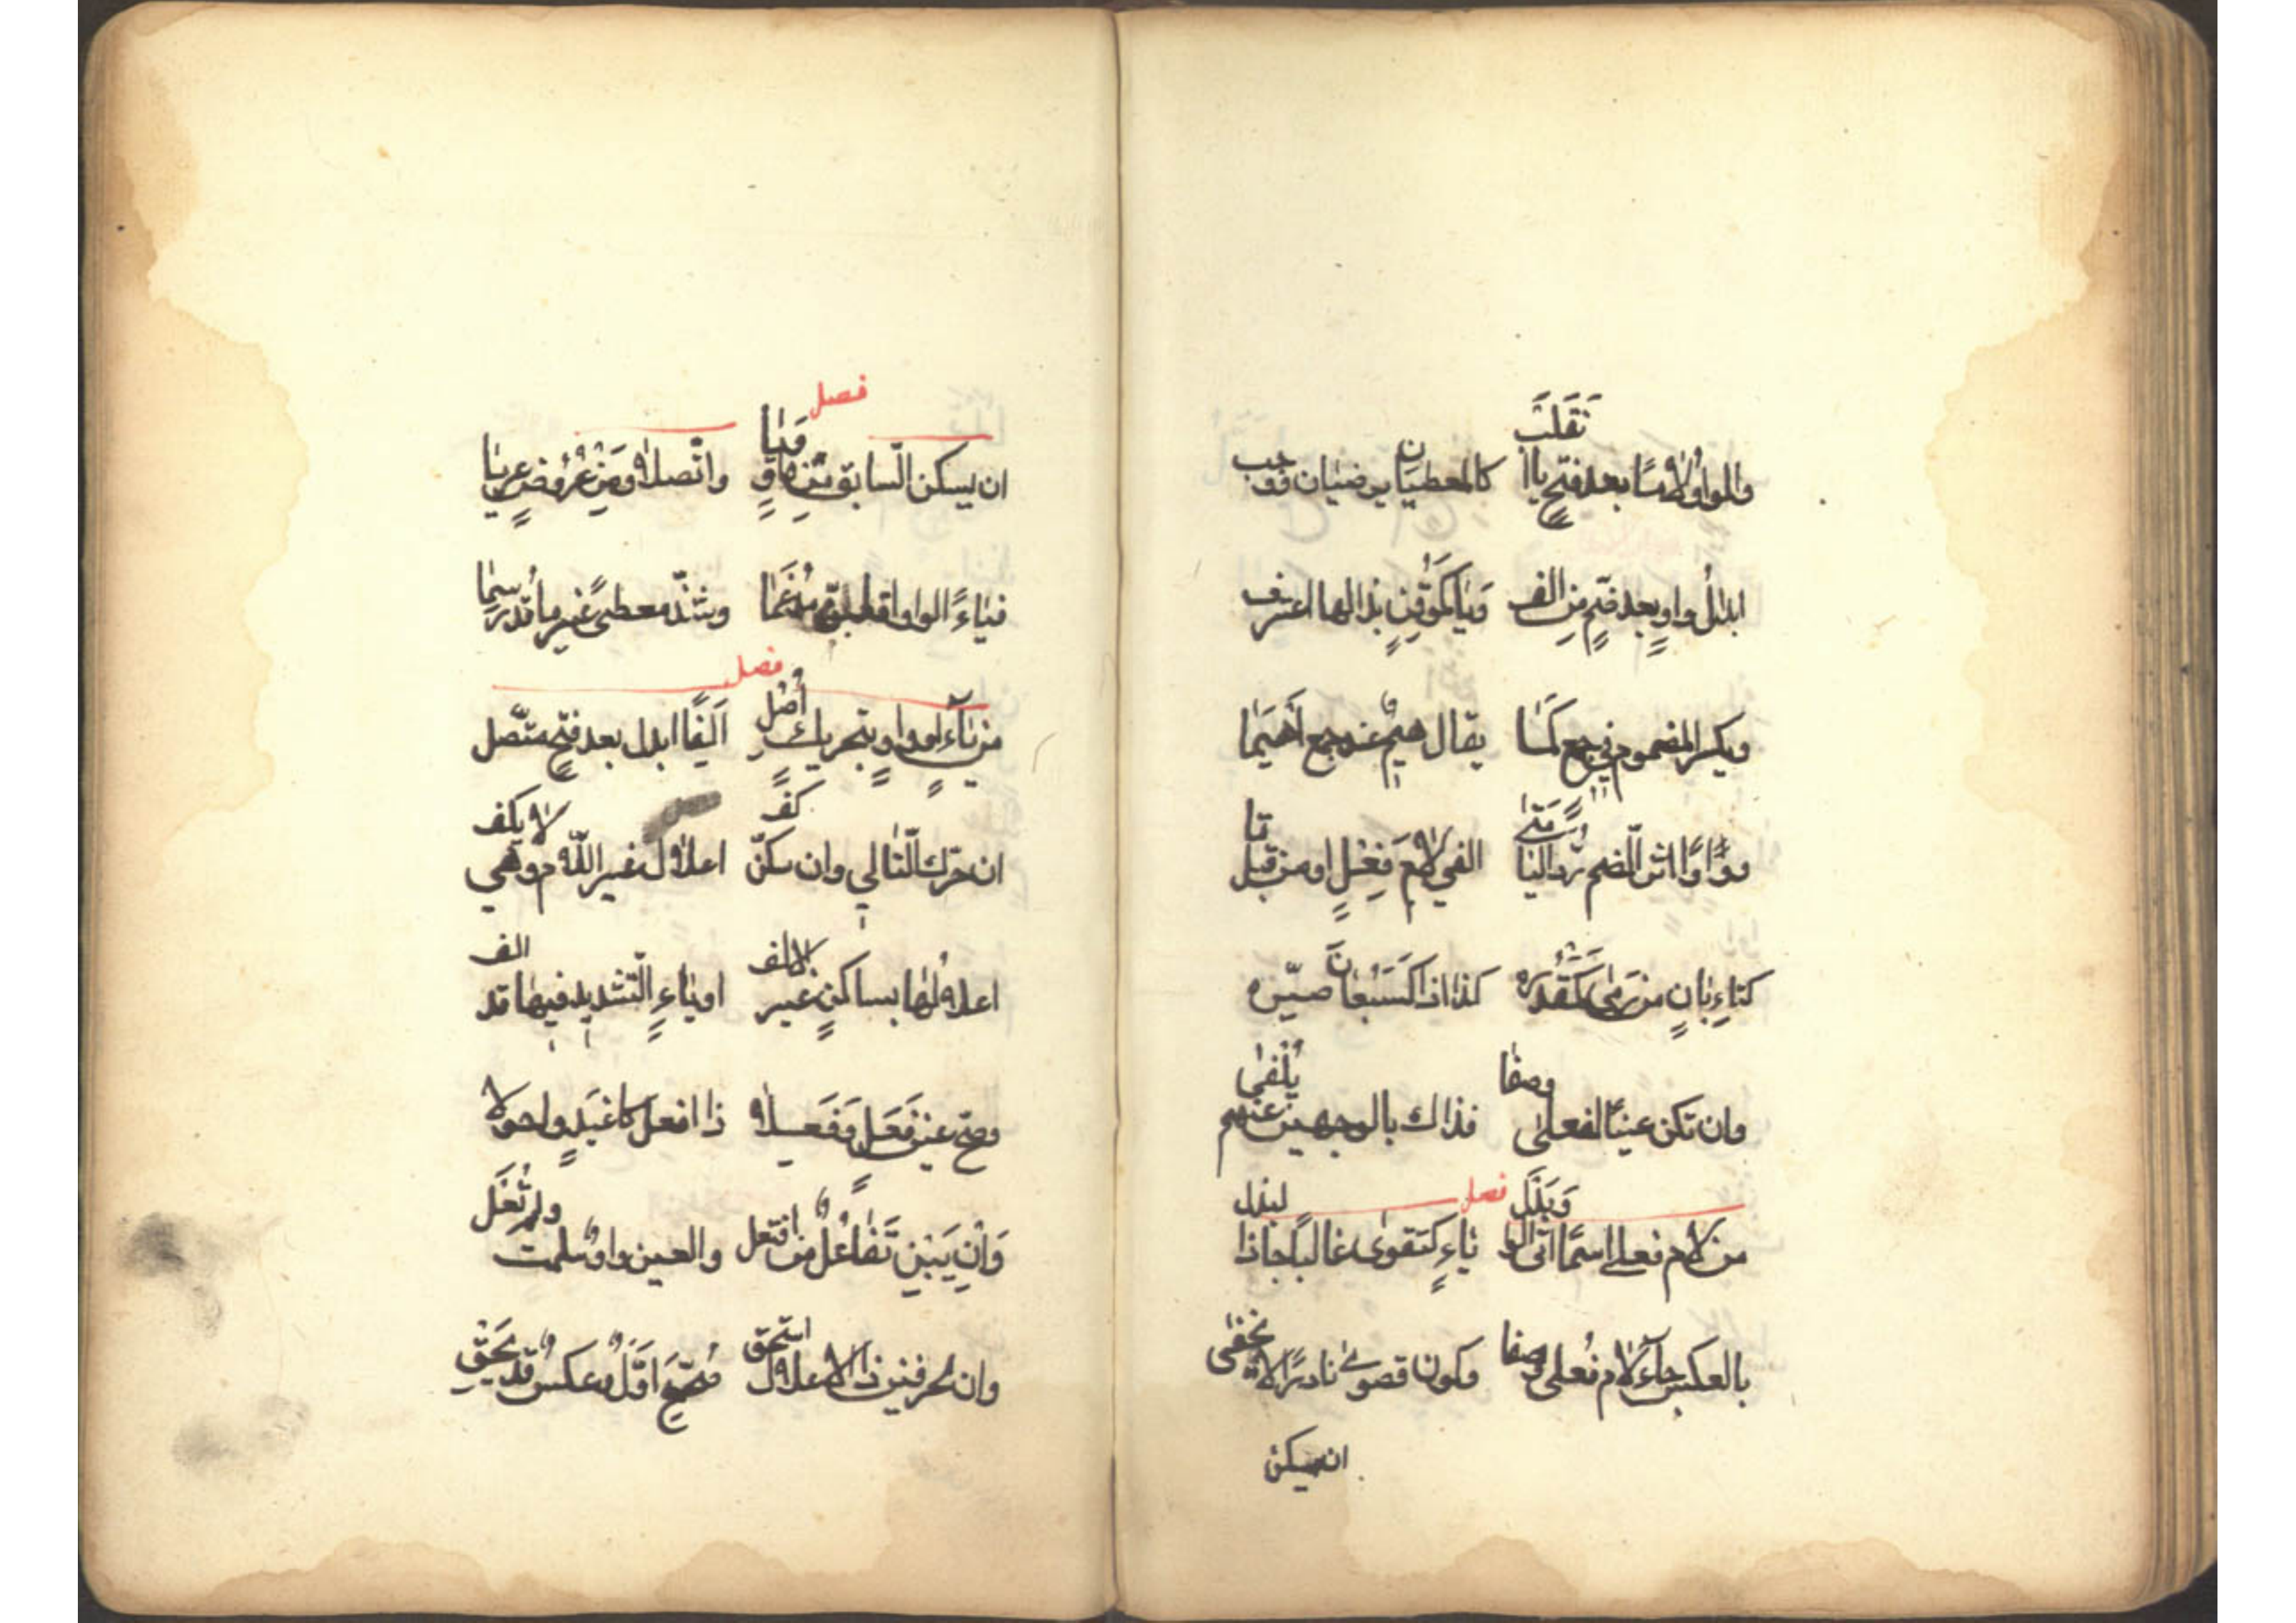 والواو لاما بعد فتح يا انقلب كالمعطيان يرضيان ووجب
ابدال واو بعد ضم من الف ويا كموقن بذا لها اعترف
ويكسر المضموم في جمع كما يقال هيم عند جمع اهيما
وواوا اثر الضم رد اليا متى الفي لام فعل او من قبل تا
كتاء بان من رمى كمقدره كذا اذا كسبعان صيره
وان تكن عينا لفعلى وصفا فذاك بالوجهين عنهم يلفى
فصل
من لام فعلى اسما اتى الواو بدل ياء كتقوى غالبا جا ذا البدل
بالعكس جاء لام فعلى وصفا وكون قصوى نادرا لا يخفى
ان يسكن
فصل
ان يسكن السابق من واو ويا واتصلا ومن عروض عريا
فياء الواو اقلبن مدغما وشذ معطى غير ما قد رسما
فصل
من ياء او واو بتحريك اصل الفا ابدل بعد فتح متصل
ان حرك التالي وان سكن كف اعلال غير اللام وهي لا يكف
اعلالها بساكن غير الف او ياء التشديد فيها قد الف
وصح عين فعل وفعلا ذا افعل كاغيد واحولا
وان يبن تفاعل من افتعل والعين واو سلمت ولم تعل
وان لحرفين ذا الاعلال استحق صحح اول وعكس قد يحق